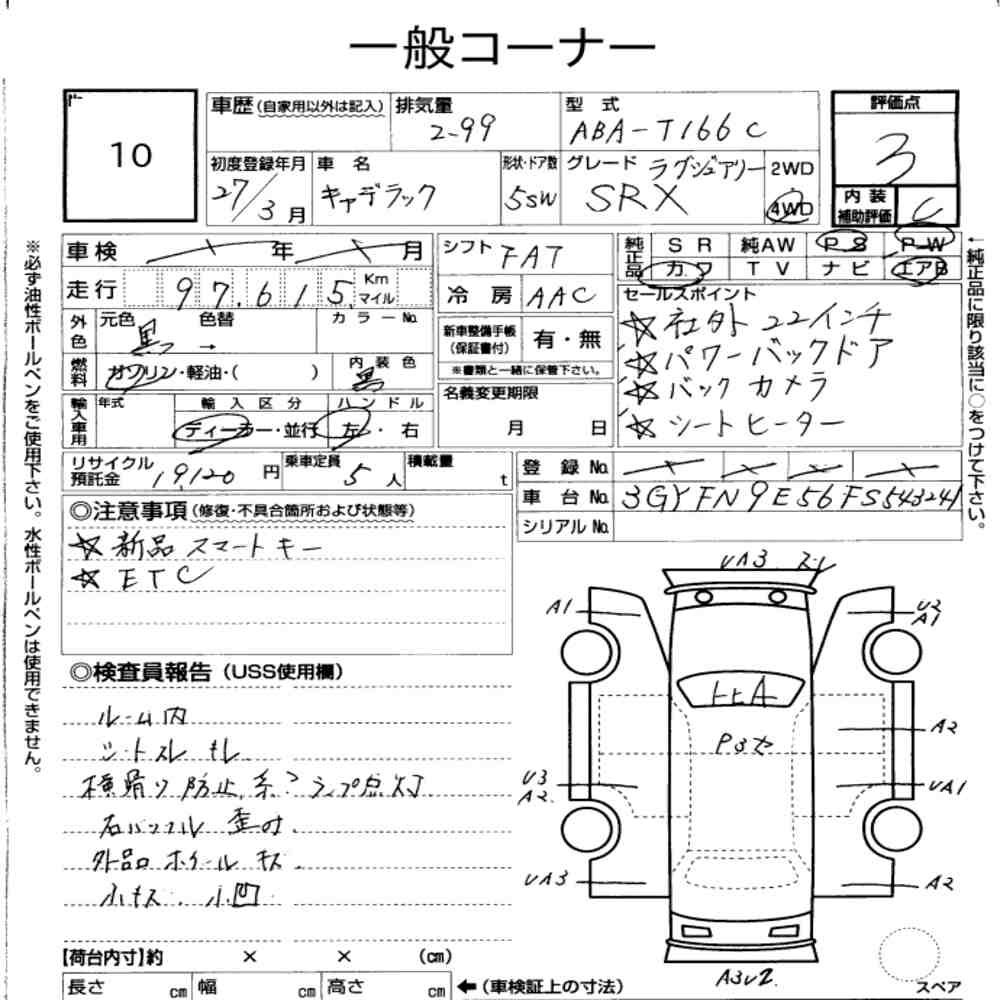 一般コーナー
10
車歴(自家用以外は記入)
排気量
2-99
型式
ABA-T166C
評価点
3
初度登録年月
27/3月
車名
キャデラック
形状・ドア数
5SW
グレード ラグジュアリー
SRX
2WD
4WD
内装
補助評価
C
車検 年 月
シフト FAT
純正品
SR 純AW PS PW
カワ TV ナビ エアB
走行 97,615 Km マイル
冷房 AAC
セールスポイント
☆社外22インチ
☆パワーバックドア
☆バックカメラ
☆シートヒーター
外色
元色 黒 → 色替
カラーNo.
新車整備手帳
(保証書付)
有・無
※書類と一緒に保管下さい。
燃料
ガソリン・軽油・( )
内装色
黒
名義変更期限
月 日
輸入車用
年式
輸入区分
ディーラー・並行
ハンドル
左・右
リサイクル
預託金
19,120円
乗車定員
5人
積載量
t
登録No.
車台No. 3GYFN9E56FS543241
シリアルNo.
◎注意事項(修復・不具合箇所および状態等)
☆新品スマートキー
☆ETC
◎検査員報告(USS使用欄)
ルーム内
シートスレ キレ
横滑り防止,系?ランプ点灯
外品ホイールキズ
小キズ、小凹
UA3
A1
U2
A1
A2
U3
A2
UA1
UA3
A2
A3U2
【荷台内寸】約 × × (cm)
長さ cm 幅 cm 高さ cm
←(車検証上の寸法)
スペア
※必ず油性ボールペンをご使用下さい。水性ボールペンは使用できません。
←純正品に限り該当に○をつけて下さい。